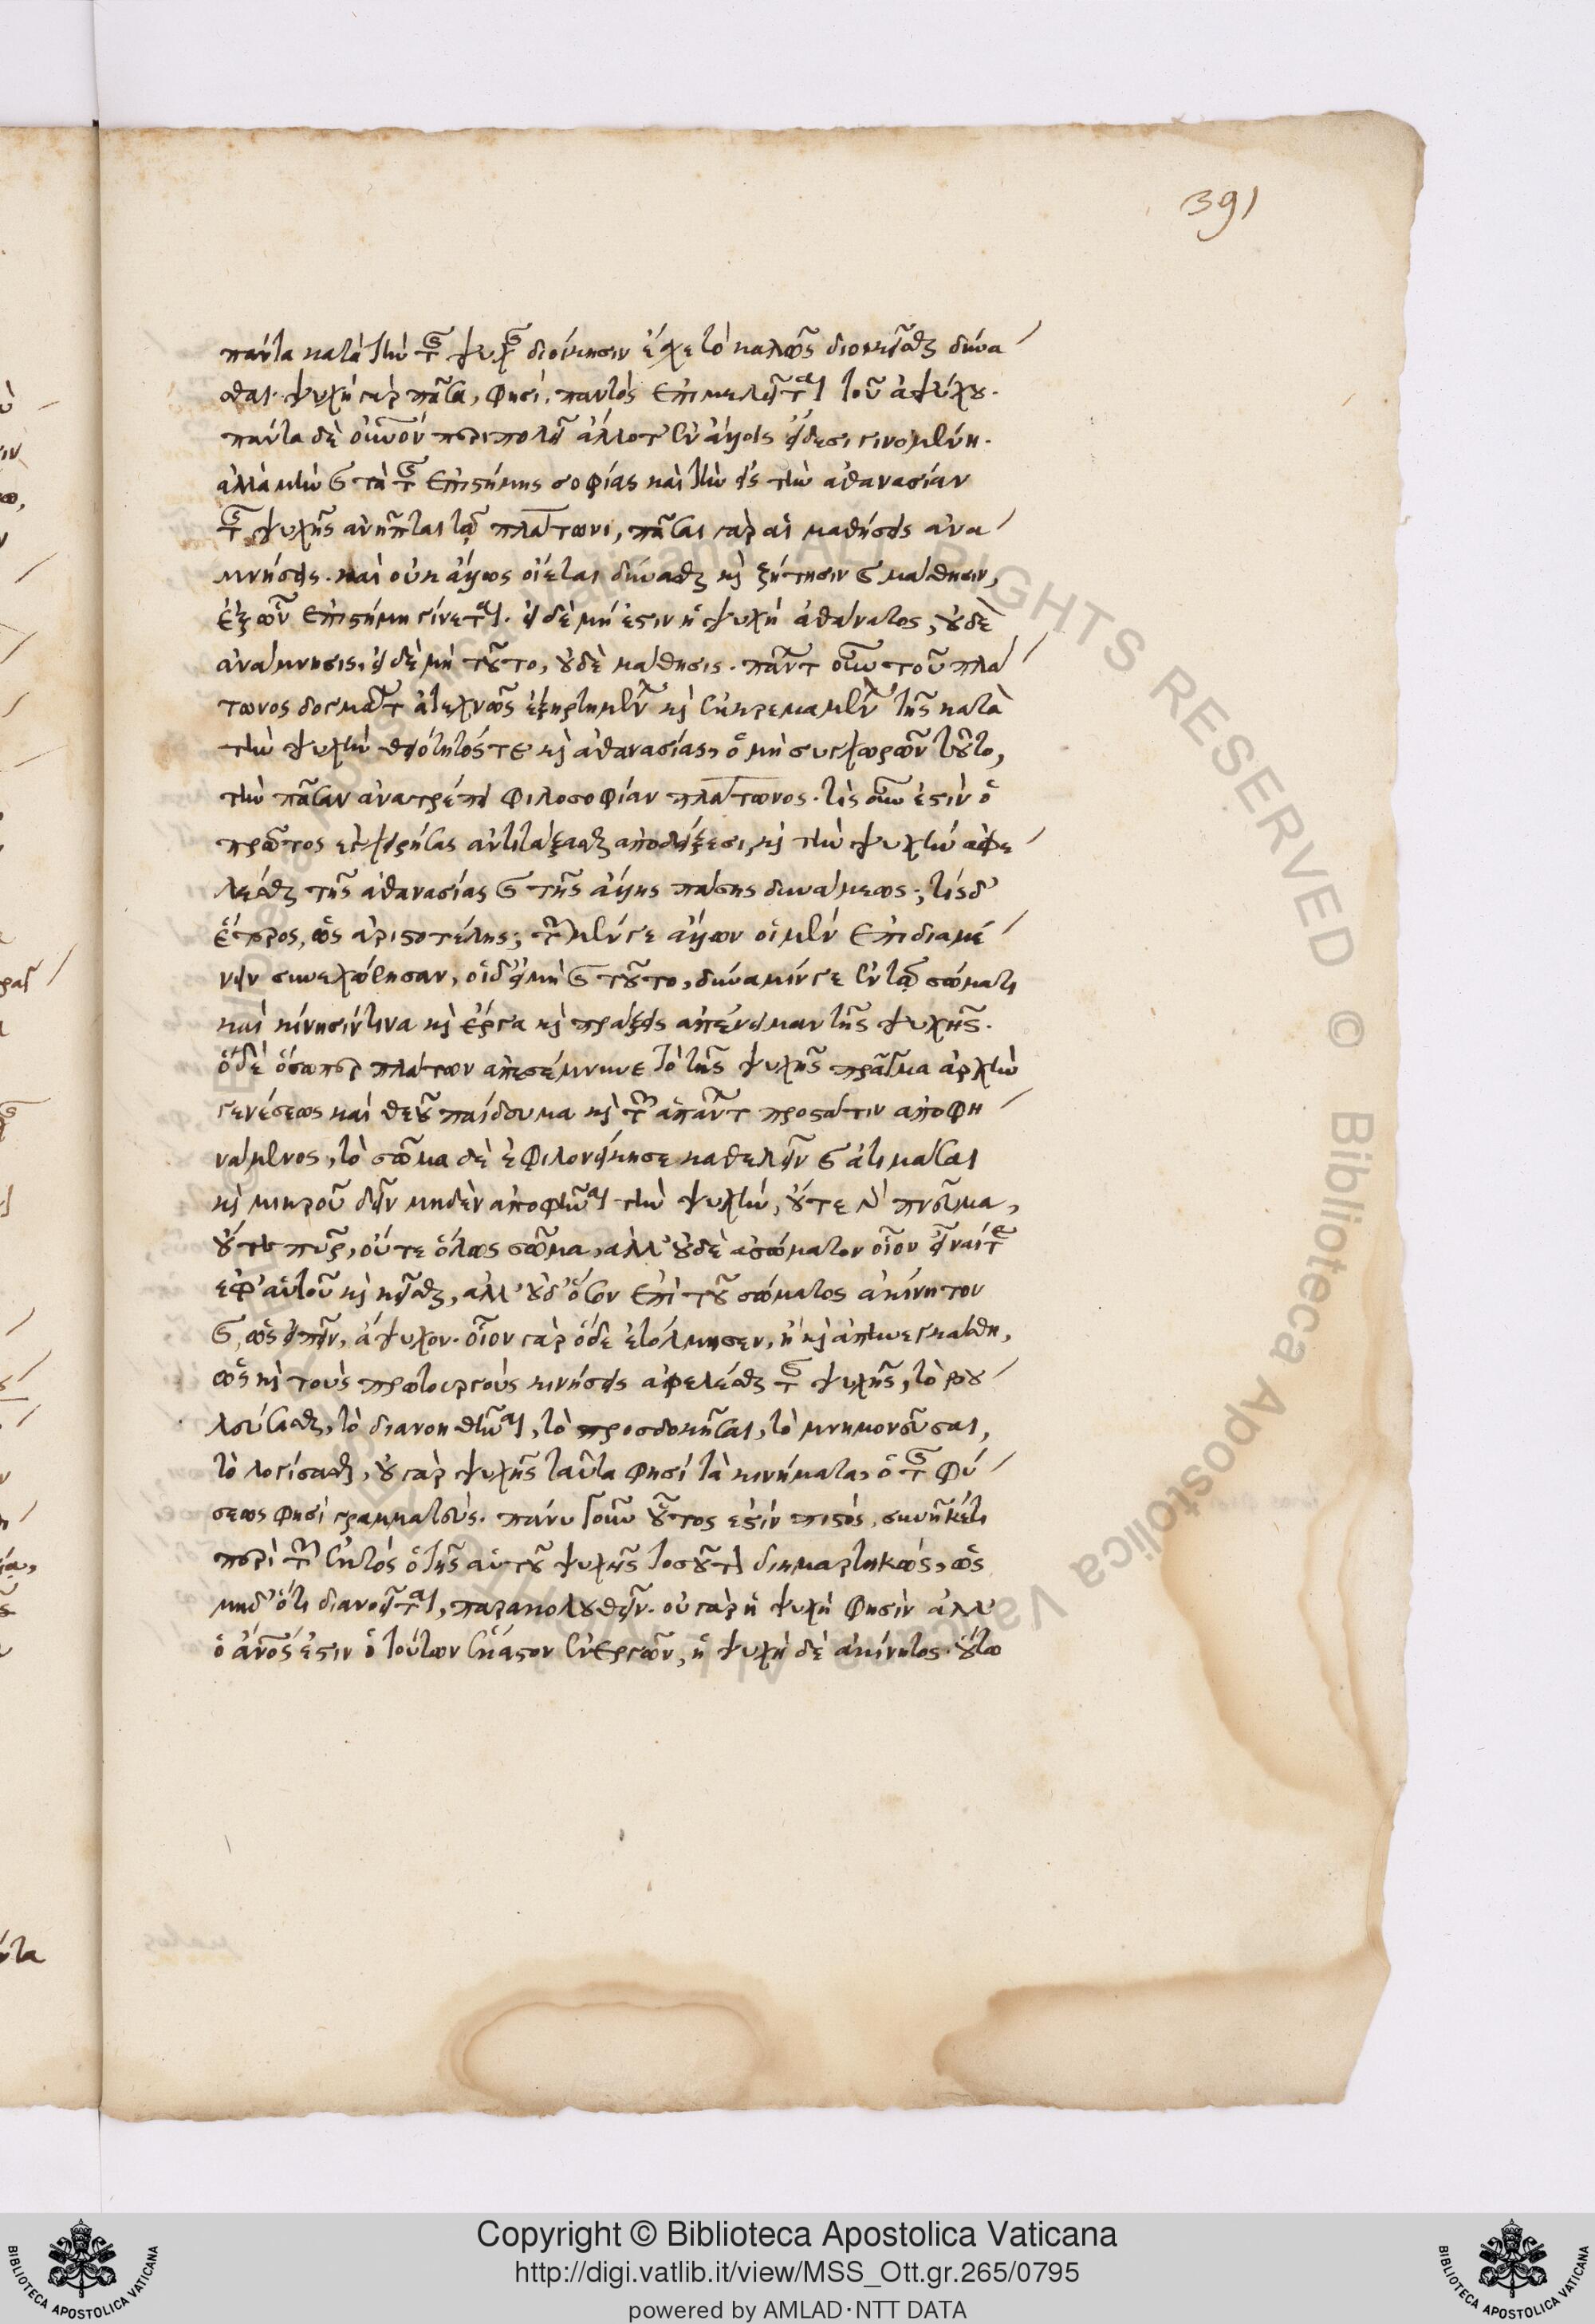 391
πάντα κατὰ τὴν τῆς ψυχῆς διοίκησιν ἔχε τὸ καλῶς διοικεῖσθαι δύνα
σθαι. ψυχὴ γὰρ πᾶσα, φησί, παντὸς ἐπιμελεῖται τοῦ ἀψύχου.
πάντα δὲ οὐνὸν περιπολεῖ ἄλλοτ' ἐν ἄλλοις εἴδεσι γινομένη.
ἀλλὰ μὴν καὶ τὰ τῆς ἐπιστήμης σοφίας καὶ τὴν εἰς τὴν ἀθανασίαν
τῆς ψυχῆς ἀνῆπται τῷ πλάτωνι, πᾶσαι γὰρ αἱ μαθήσεις ἀνα
μνήσεις. καὶ οὐκ ἄλλως οἴεται δύνασθαι καὶ ζήτησιν καὶ μάθησιν,
ἐξ ὧν ἐπιστήμη γίνεται. εἰ δὲ μή ἐστιν ἡ ψυχὴ ἀθάνατος, οὐδὲ
ἀνάμνησις. εἰ δὲ μὴ τοῦτο, οὐδὲ μάθησις. πάντων οὖν τοῦ πλά
τωνος δογμάτων ἀτεχνῶς ἐξηρτημένων καὶ ἐκκρεμαμένων τῆς κατὰ
τὴν ψυχὴν θειότητός τε καὶ ἀθανασίας, ὁ μὴ συγχωρῶν τοῦτο,
τὴν πᾶσαν ἀνατρέπει φιλοσοφίαν πλάτωνος. τίς οὖν ἐστὶν ὁ
πρῶτος ἐγχειρήσας ἀντιτάξασθαι ἀποδείξεσι, καὶ τὴν ψυχὴν ἀφε
λέσθαι τῆς ἀθανασίας καὶ τῆς ἄλλης πάσης δυνάμεως; τίς δ'
ἕτερος, ὡς ἀριστοτέλης; τῶν μέν γε ἄλλων οἱ μὲν ἐπιδιαμέ
νειν συνεχώρησαν, οἱ δ' εἰ μὴ καὶ τοῦτο, δύναμίν γε ἐν τῷ σώματι
καὶ κίνησίν τινα καὶ ἔργα καὶ πράξεις ἀπένειμαν τῆς ψυχῆς.
ὁ δὲ ὅσῳπερ πλάτων ἀπεσέμνυνε τὸ τῆς ψυχῆς πρᾶγμα ἀρχὴν
γενέσεως καὶ θεοῦ παίδευμα καὶ τῶν ἁπάντων προστάτιν ἀποφη
νάμενος, τὸ σῶμα δὲ ἐφιλονείκησε καθελεῖν καὶ ἀτιμάσαι
καὶ μικροῦ δεῖν μηδὲν ἀποφῆναι τὴν ψυχὴν, οὔτε πνεῦμα,
οὔτε πῦρ, οὔτε ὅλως σῶμα, ἀλλ' οὐδὲ ἀσώματον οἷον εἶναί τε
ἐφ' αὑτοῦ καὶ κεῖσθαι, ἀλλ' οὐδ' ὅσον ἐπὶ τοῦ σώματος ἀκίνητον
καὶ, ὡς εἰπεῖν, ἄψυχον. οἷον γὰρ ὅδε ἐτόλμησεν, ἢ καὶ ἀπηνεγκάσθη,
ὡς καὶ τοὺς πρωτουργοὺς κινήσεις ἀφελέσθαι τῆς ψυχῆς, τὸ βου
λεύσασθαι, τὸ διανοηθῆναι, τὸ προσδοκῆσαι, τὸ μνημονεῦσαι,
τὸ λογίσασθαι, οὐ γὰρ ψυχῆς ταῦτα φησὶ τὰ κινήματα, ὁ τῆς φύ
σεως φησὶ γραμματεύς. πάνυ γοῦν οὗτος ἐστὶν πιστὸς, συνῆκέ τι
περὶ τῶν ἐκτὸς ὁ τῆς αὑτοῦ ψυχῆς τοσοῦτον διημαρτηκώς, ὡς
μηδ' ὅτι διανοεῖται, παρακολουθεῖν. οὐ γὰρ ἡ ψυχὴ φησὶν ἀλλ'
ὁ ἄνος ἐστιν ὁ τούτων ἕκαστον ἐνεργῶν, ἡ ψυχὴ δὲ ἀκίνητος. οὕτω
Copyright © Biblioteca Apostolica Vaticana
http://digi.vatlib.it/view/MSS_Ott.gr.265/0795
powered by AMLAD·NTT DATA